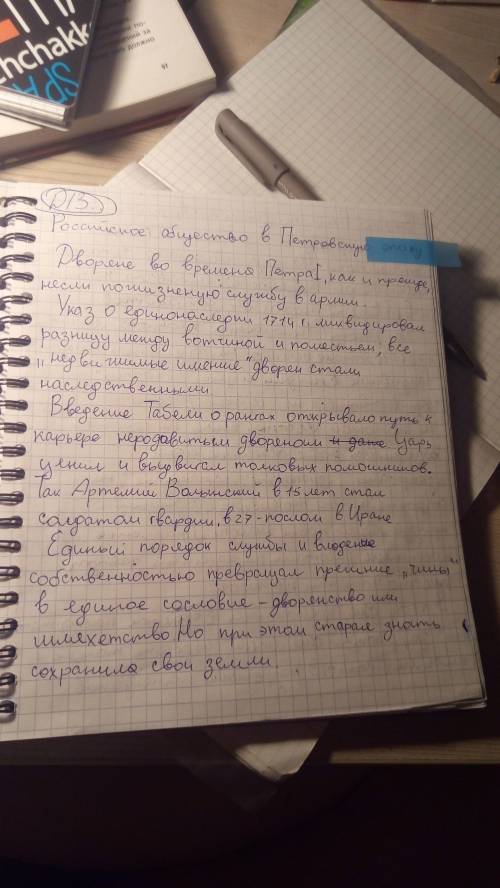 chchakk
SPA
97
Д13.
Российское общество в Петровскую эпоху
Дворяне во времена Петра I, как и прежде,
несли пожизненую службу в армии.
Указ о единонаследии 1714 г. ликвидировал
разницу между вотчиной и поместьем, все
„недвижимые имение" дворян стали
наследственными
Введение Табели о рангах открывало путь к
карьере неродавитым двореном и даже Царь
ценил и выдвигал толковых помошников.
Так Артемий Волынский в 15 лет стал
солдатом гвардии, в 27 - послом в Иране
Единый порядок службы и владение
собственностью превращал прежние „чины"
в единое сословие - дворянство или
шляхетство Но при этом старая знать
сохранила свои земли.